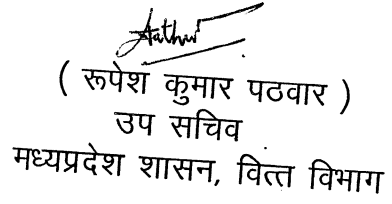 ( रूपेश कुमार पठवार )
उप सचिव
मध्यप्रदेश शासन, वित्त विभाग